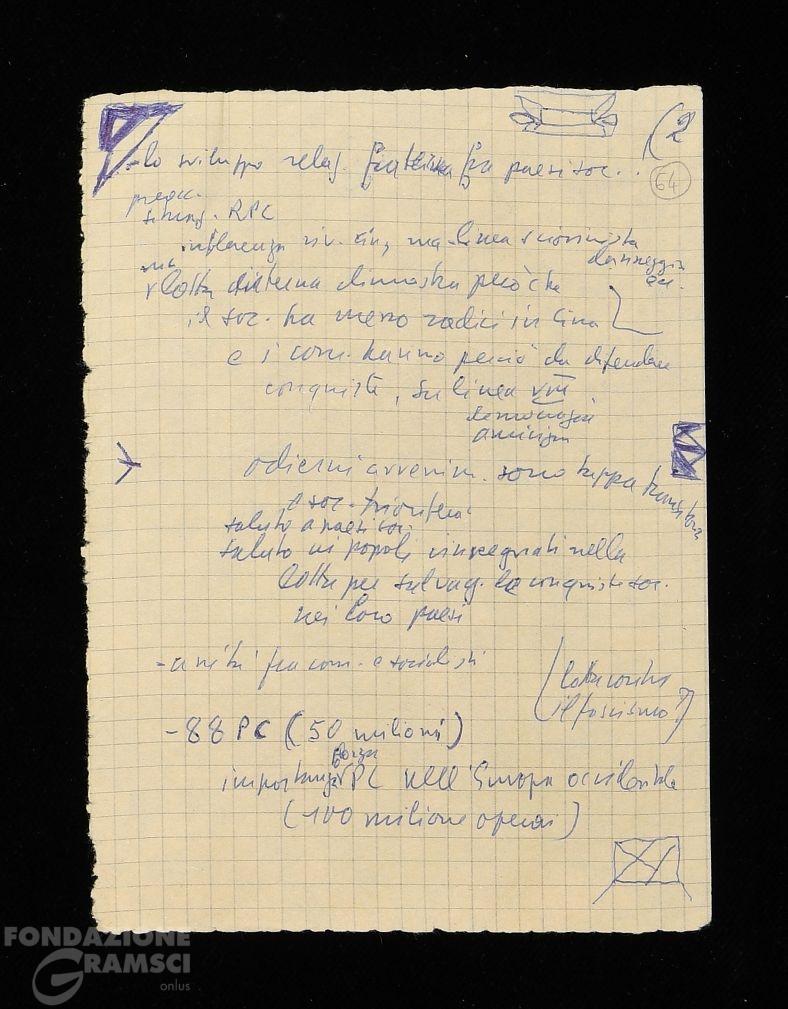 (2
64
- lo sviluppo relaz. fraterna fra paesi soc. . .
RPC
influenza riv. cin, ma linea sciovinista
danneggia
ecc.
ma
lotta interna dimostra però che
il soc. ha messo radici in Cina
e i com. hanno perciò da difendere
conquiste, su linea VIII
amicizia
odierni avvenim. sono tappa transitoria
e soc. trionferà
saluto a paesi soc.
saluto ai popoli impegnati nella
lotta per salvag. le conquiste soc.
nei loro paesi
- unità fra com. e socialisti
(lotta contro
il fascismo?)
- 88 PC (50 milioni)
forza
importanza PC nell'Europa occidentale
(100 milione operai)
FONDAZIONE
GRAMSCI
onlus